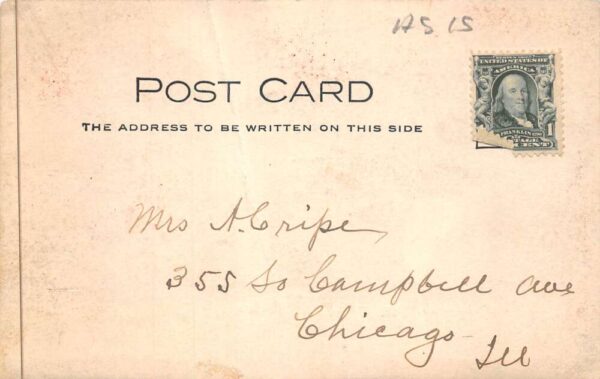 AS IS
POST CARD
THE ADDRESS TO BE WRITTEN ON THIS SIDE
UNITED STATES OF
AMERICA
FRANKLIN
1
CENT
Mrs A. Cripe
355 So Campbell Ave
Chicago
Ill